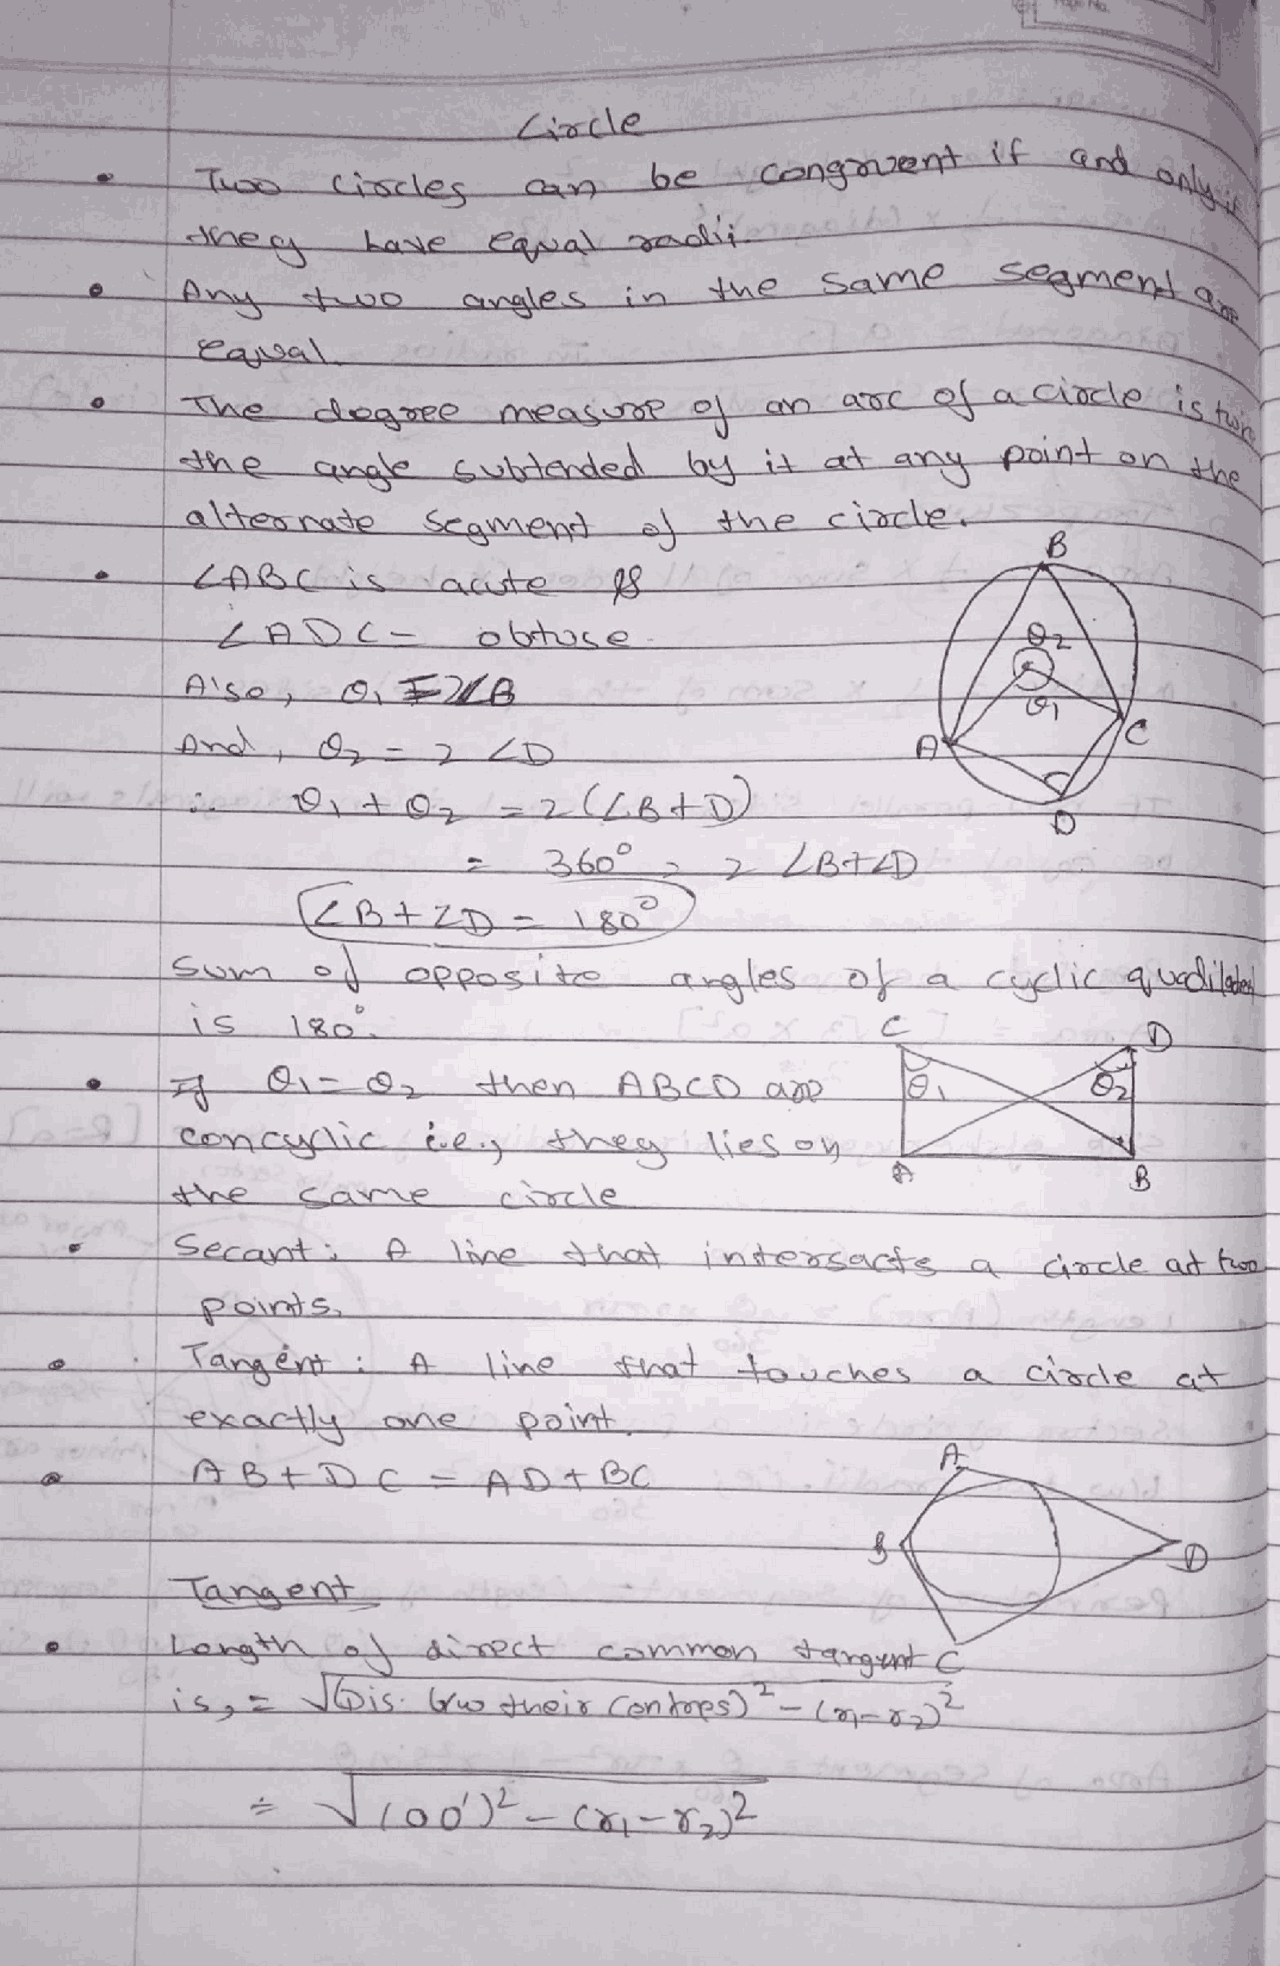 Circle
• Two circles can be congruent if and only if
they have equal radii.
• Any two angles in the same segment are
equal.
• The degree measure of an arc of a circle is twice
the angle subtended by it at any point on the
alternate segment of the circle.
B
• ∠ABC is acute
∠ADC = obtuse.
θ2
Also, θ1 = 2∠B
θ1
And, θ2 = 2 ∠D
A C
∴ θ1 + θ2 = 2(∠B+D)
D
= 360° = 2 ∠B+∠D
∠B + ∠D = 180°
Sum of opposite angles of a cyclic
is 180°.
C D
• If θ1 = θ2 then ABCD are
θ1 θ2
concyclic i.e., they lies on
A B
the same circle
• Secant: A line that intersacts a circle at two
points.
• Tangent: A line that touches a circle at
exactly one point.
A
• AB + DC = AD + BC
B D
Tangent
• Length of direct common tangent
C
is, = √(Dis. b/w their Centres)² - (r1-r2)²
= √(OO')² - (r1-r2)²